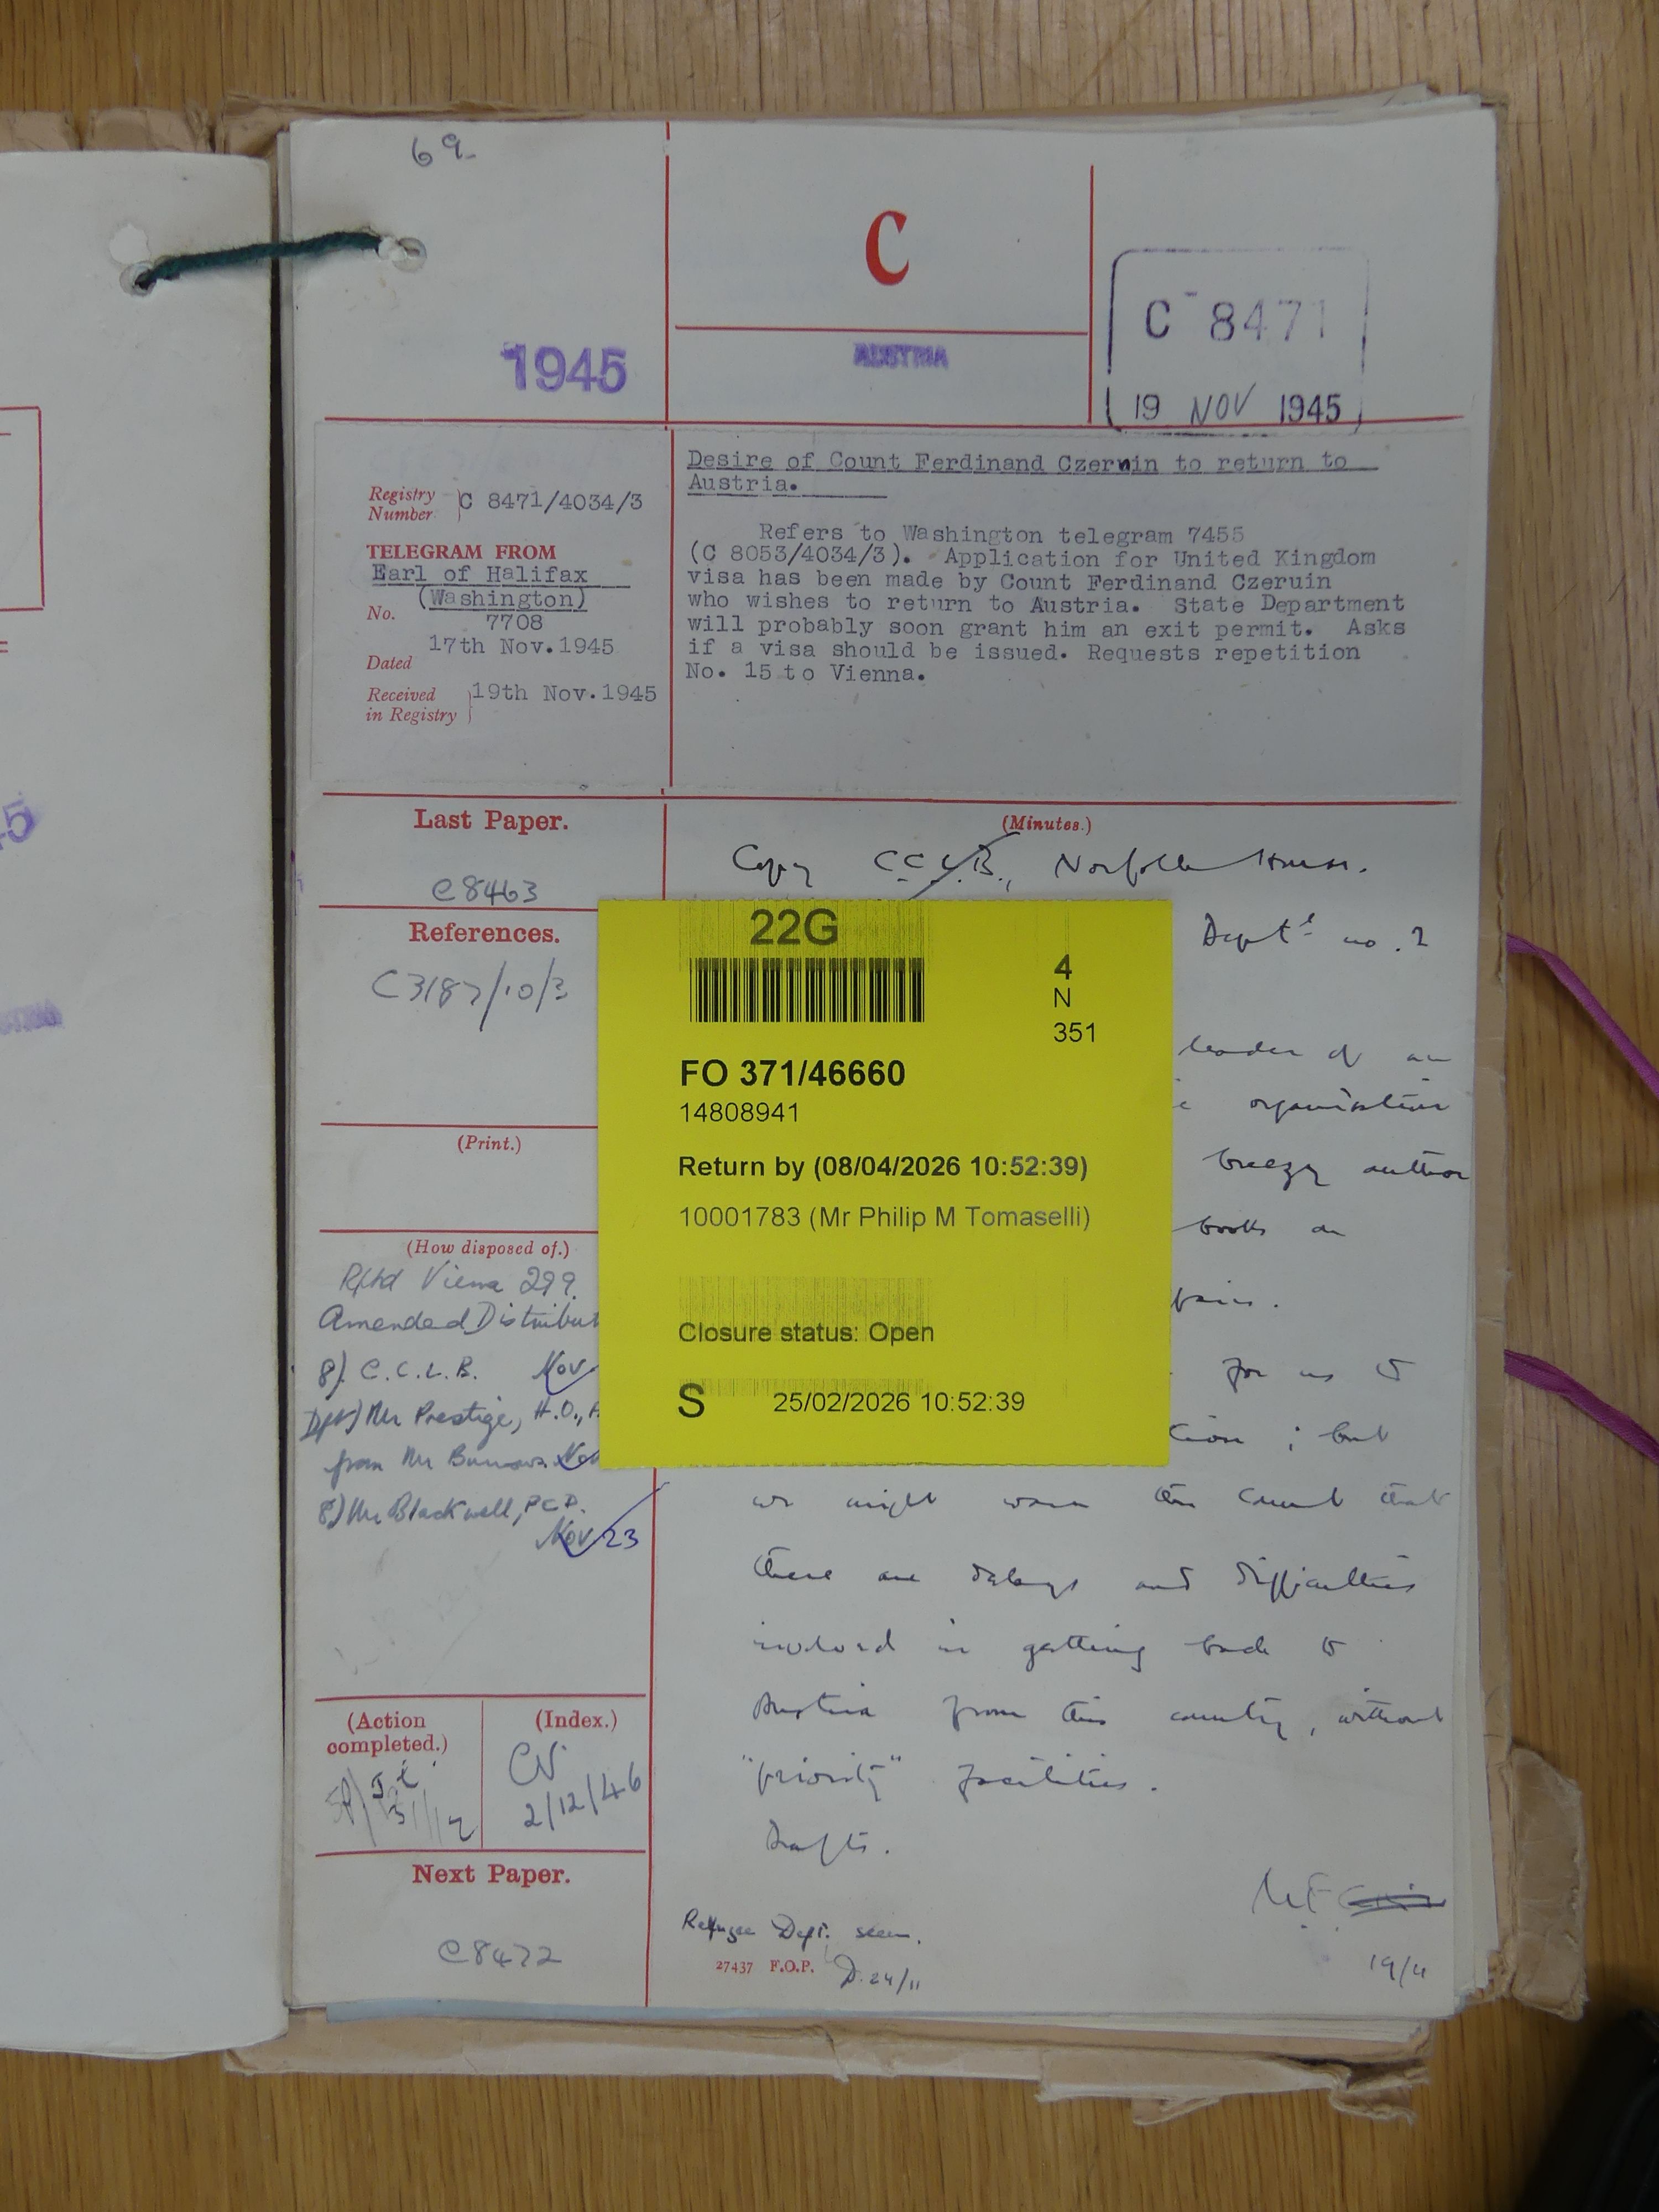 69.
C
C 8471
19 NOV 1945
1945
AUSTRIA
Registry Number } C 8471/4034/3
TELEGRAM FROM
Earl of Halifax
(Washington)
No. 7708
Dated 17th Nov.1945
Received in Registry } 19th Nov.1945
Desire of Count Ferdinand Czernin to return to
Austria.
Refers to Washington telegram 7455
(C 8053/4034/3). Application for United Kingdom
visa has been made by Count Ferdinand Czeruin
who wishes to return to Austria. State Department
will probably soon grant him an exit permit. Asks
if a visa should be issued. Requests repetition
No. 15 to Vienna.
Last Paper.
C8463
References.
C3187/10/3
(Print.)
(How disposed of.)
Rptd Vienna 299.
Amended Distribut
8) C.C.L.B. Nov
Dft) Mr Prestige, H.O.,
from Mr Burrows Nov
8) Mr Blackwell, PCD.
Nov 23
(Action completed.)
(Index.)
2/12/46
Next Paper.
C8472
(Minutes.)
Copy C.C.L.B., Norfolk House.
Dept no. 2
leader of an
organisation
breezy author
books on
for us to
; but
we might warn the Count that
there are delays and difficulties
involved in getting back to
Austria from this country, without
"priority" facilities.
Drafts.
19/11
Refugee Dept. seen.
27437 F.O.P.
D. 24/11
22G
4
N
351
FO 371/46660
14808941
Return by (08/04/2026 10:52:39)
10001783 (Mr Philip M Tomaselli)
Closure status: Open
S 25/02/2026 10:52:39